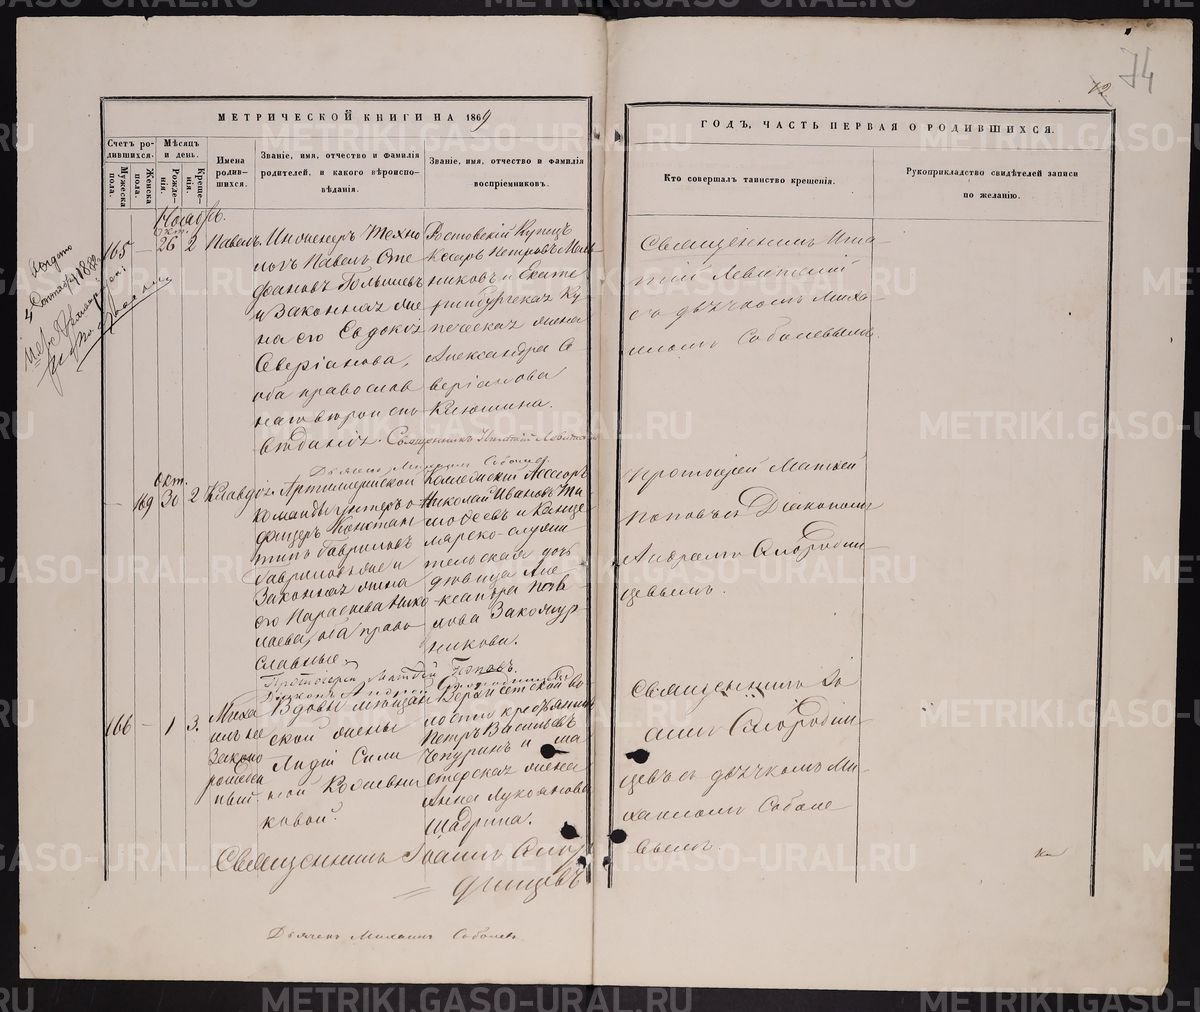 74
МЕТРИЧЕСКОЙ КНИГИ НА 1869
ГОДЪ, ЧАСТЬ ПЕРВАЯ О РОДИВШИХСЯ.
Счетъ родившихся.
Мужеска пола.
Женска пола.
Мѣсяцъ и день.
Рожденія.
Крещенія.
Имена родившихся.
Званіе, имя, отчество и фамилія
родителей, и какого вѣроиспо-
вѣданія.
Званіе, имя, отчество и фамилія
воспріемниковъ.
Кто совершалъ таинство крещенія.
Рукоприкладство свидѣтелей записи
по желанію.
Ноябрь.
165
—
окт.
26
2
Павелъ.
Инженеръ Техно
логъ Павелъ Сте
фановъ Голышевъ
и Законная же
на его Евдокія
Северіанова,
оба православ
наго вѣроиспо
вѣданія. Священникъ Игнатій Левитскій
Дьячекъ Михаилъ Соболевъ
Ростовскій Купецъ
Петровъ Мель
никовъ и Екате
ринбургская Ку
печеская жена
Александра Се
веріанова
Клюшина.
Священникъ Игна
тій Левитскій
съ дьячкомъ Миха
иломъ Соболевымъ.
—
169
Окт.
30
2
Клавдія.
Артиллерійской
команды унтеръ о-
фицеръ Констан
тинъ Гавриловъ
Гавриловъ же и
Законная жена
его Параскева Нико
лаева, оба право
славные.
Протоіерей Матвій Поповъ.
Діаконъ Андрей Смородинцевъ
Коллежскій Ассесоръ
Николай Ивановъ Ти
мофеевъ и Канце
лярско-служи
тельская дочь
дѣвица Але
ксандра Пав
лова Закожур
никова.
Протоіерей Матвей
Поповъ съ Діакономъ
Андреемъ Смородин
цевымъ.
166
—
1
3.
Миха
илъ не
Законо
рожден
ный.
Вдовы мѣщан
ской жены
Лидіи Сили
ной Кожевни
ковой.
волости крестьянинъ
Петръ Васильевъ
Чепуринъ и ма
стерская жена
Анна Лукоянова
Шадрина.
Священникъ Іо
аннъ Смородин
цевъ съ дьячкомъ Ми
хаиломъ Соболе
вымъ.
Священникъ Іоаннъ Смор
динцевъ
Дьячекъ Михаилъ Соболевъ
METRIKI.GASO-URAL.RU